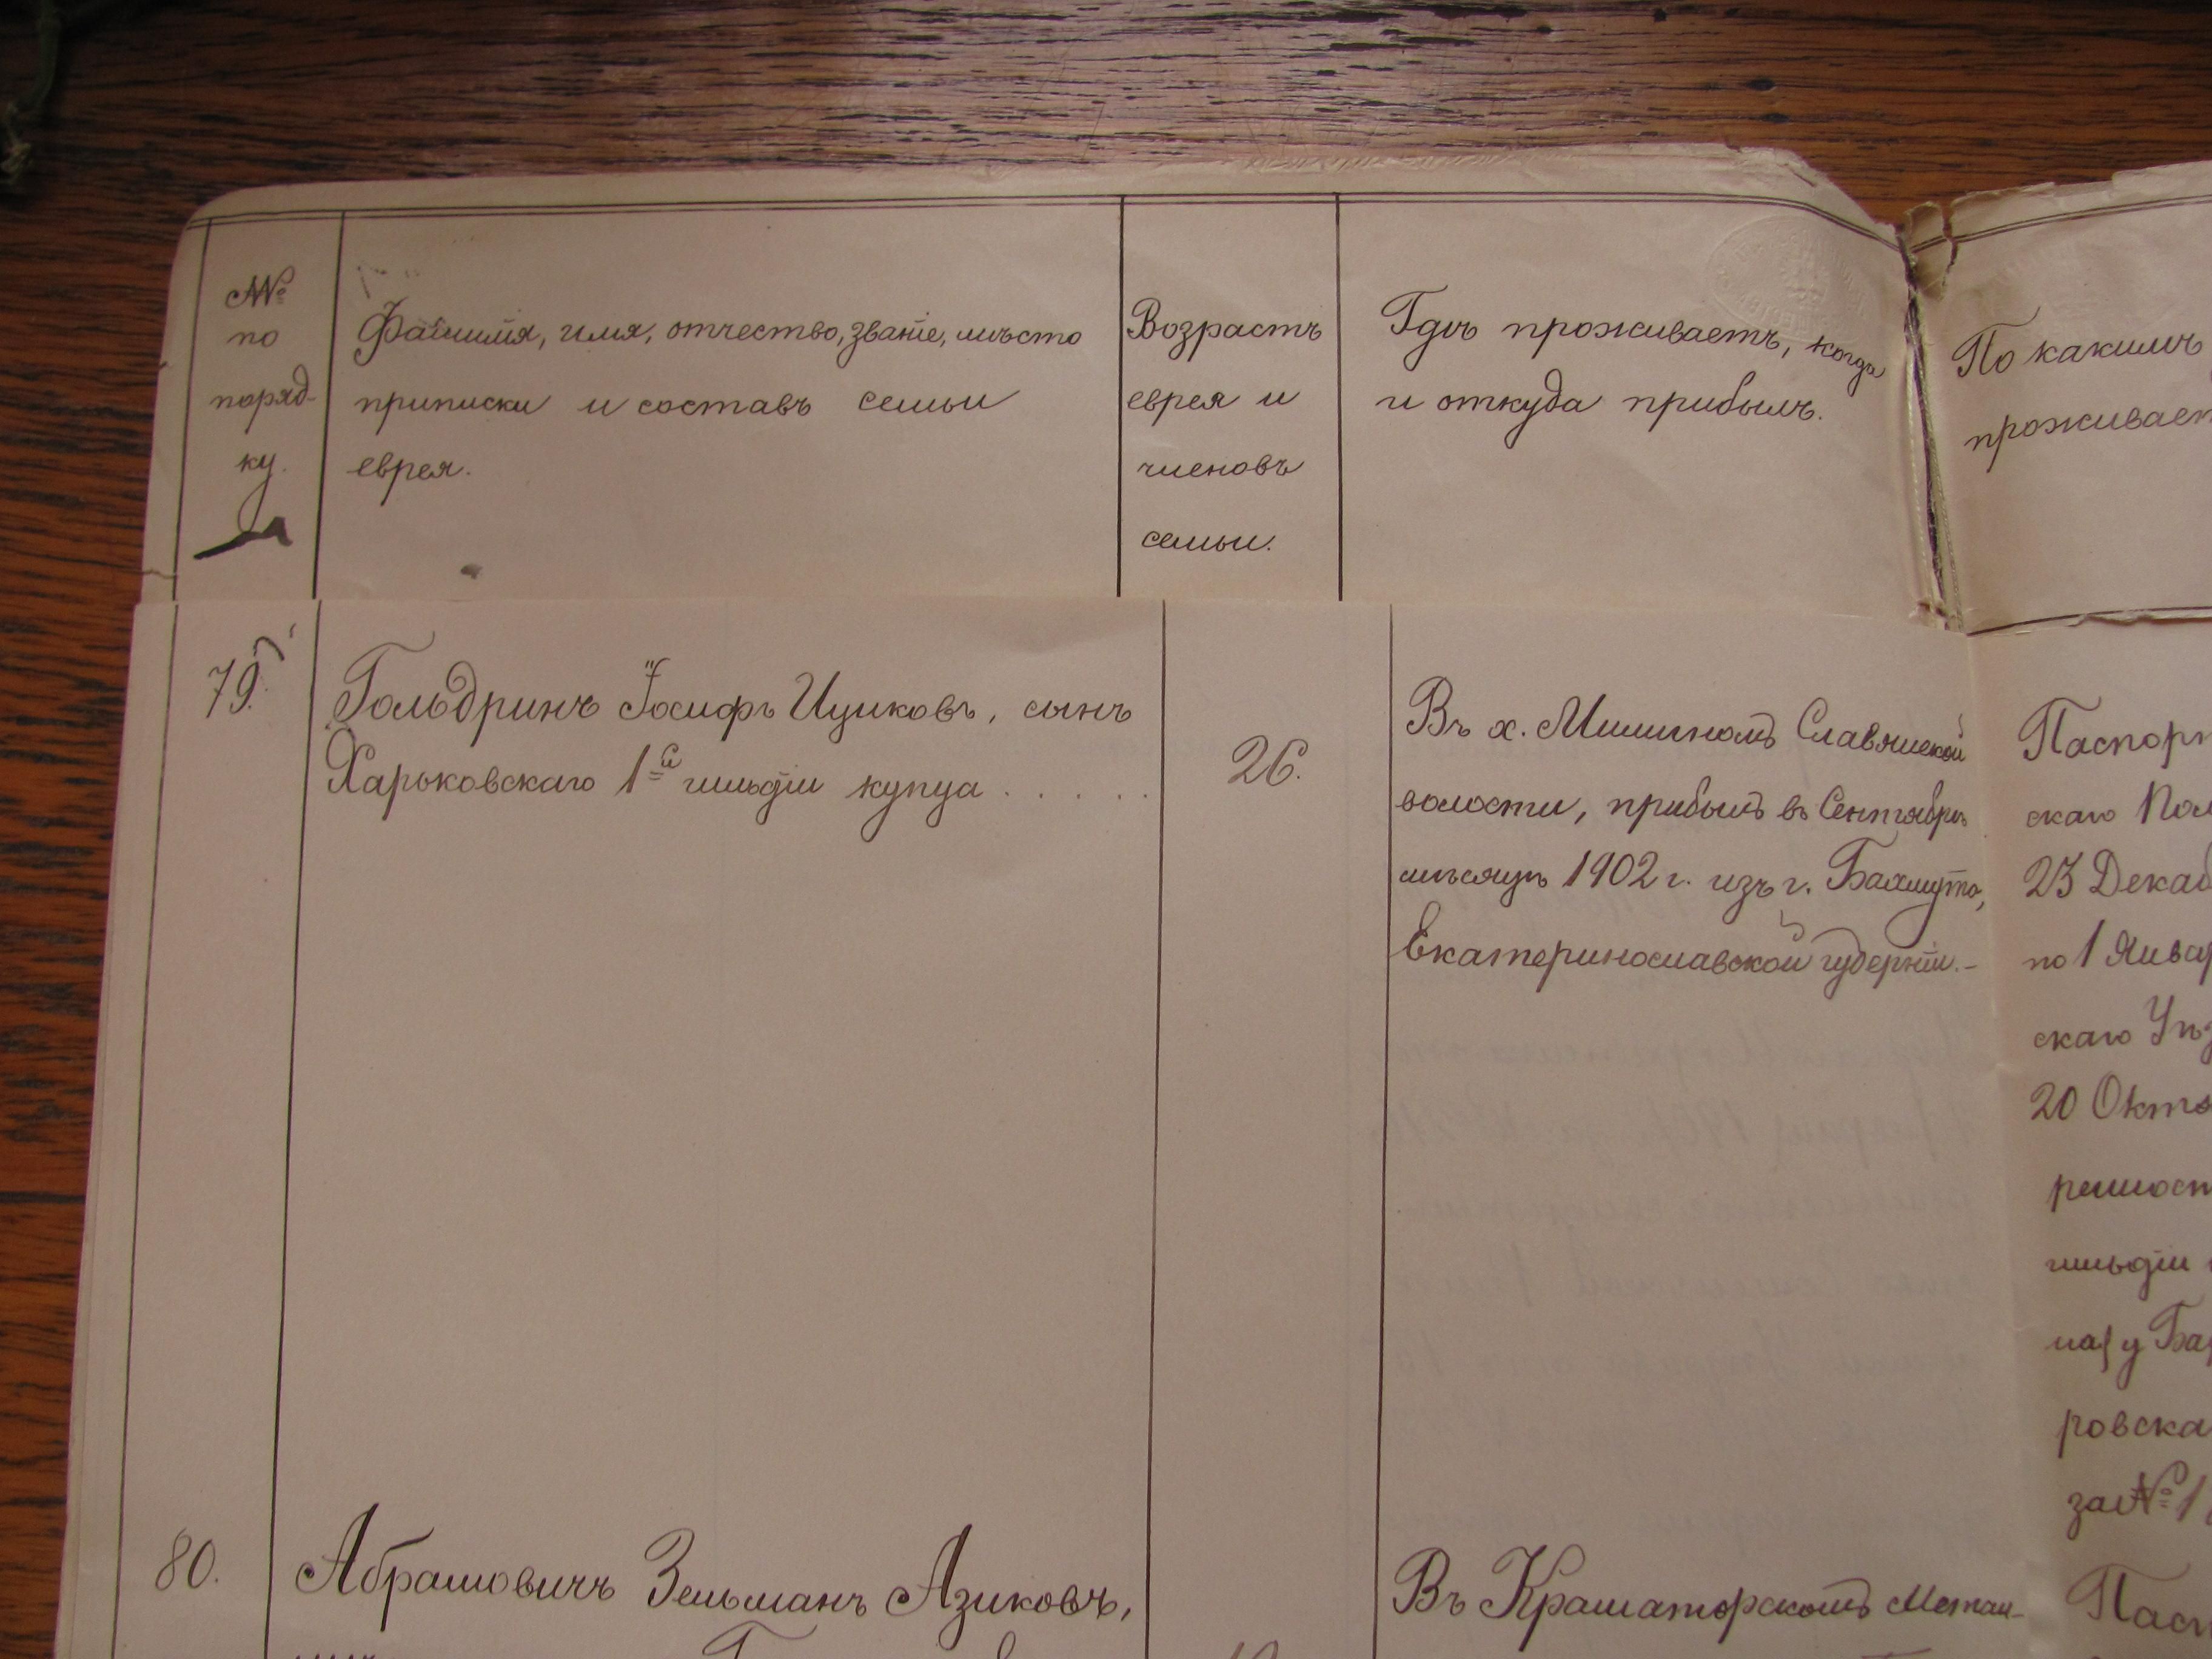 №№
по
поряд-
ку.
Фамилія, имя, отчество, званіе, мѣсто
приписки и составъ семьи
еврея.
Возрастъ
еврея и
членовъ
семьи.
Гдѣ проживаетъ, когда
и откуда прибылъ.
По какимъ
проживает
79.
Гольдринъ Іосифъ Ицковъ, сынъ
Харьковскаго 1й гильдіи купца . . . . .
26.
Въ х. Славянской
волости, прибылъ въ Сентябрѣ
мѣсяцѣ 1902 г. изъ г. Бахмута,
Екатеринославской губерніи.-
Паспорт
скаго Пол
23 Декаб
по 1 Январ
скаго Уѣз
20 Октя
ремосл
гильдіи
у Бар
ровска
за № 1
80.
Абрамовичъ Зельманъ Азиковъ,
Въ Краматорскомъ Метал-
Пасп